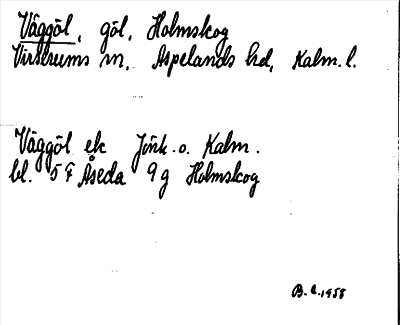 Väggöl, göl, Holmskog
Virserums sn, Aspelands hd, Kalm. l.
Väggöl ek Jönk. o. Kalm.
bl. 5 F Åseda 9 g Holmskog
B. L. 1958